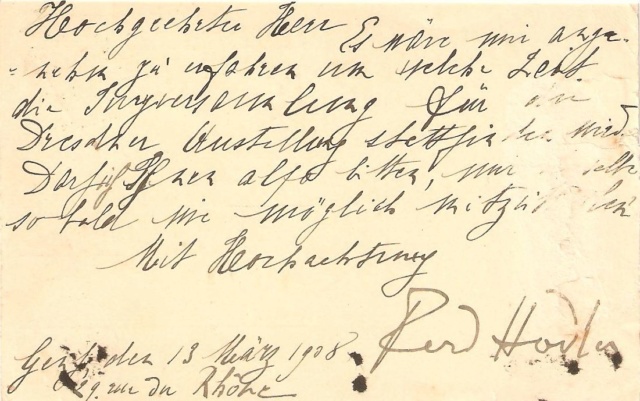 Hochgeehrter Herr Es wäre mir ange-
-nehm zu erfahren um welche Zeit
die Juryversammlung für die
Dresdner Austellung stattfinden wird
Darf ich Ihnen also bitten, mir
so bald wie möglich mitzutheilen
Mit Hochachtung
Ferd Hodler
Genf, den 13 März 1908
29. rue du Rhône